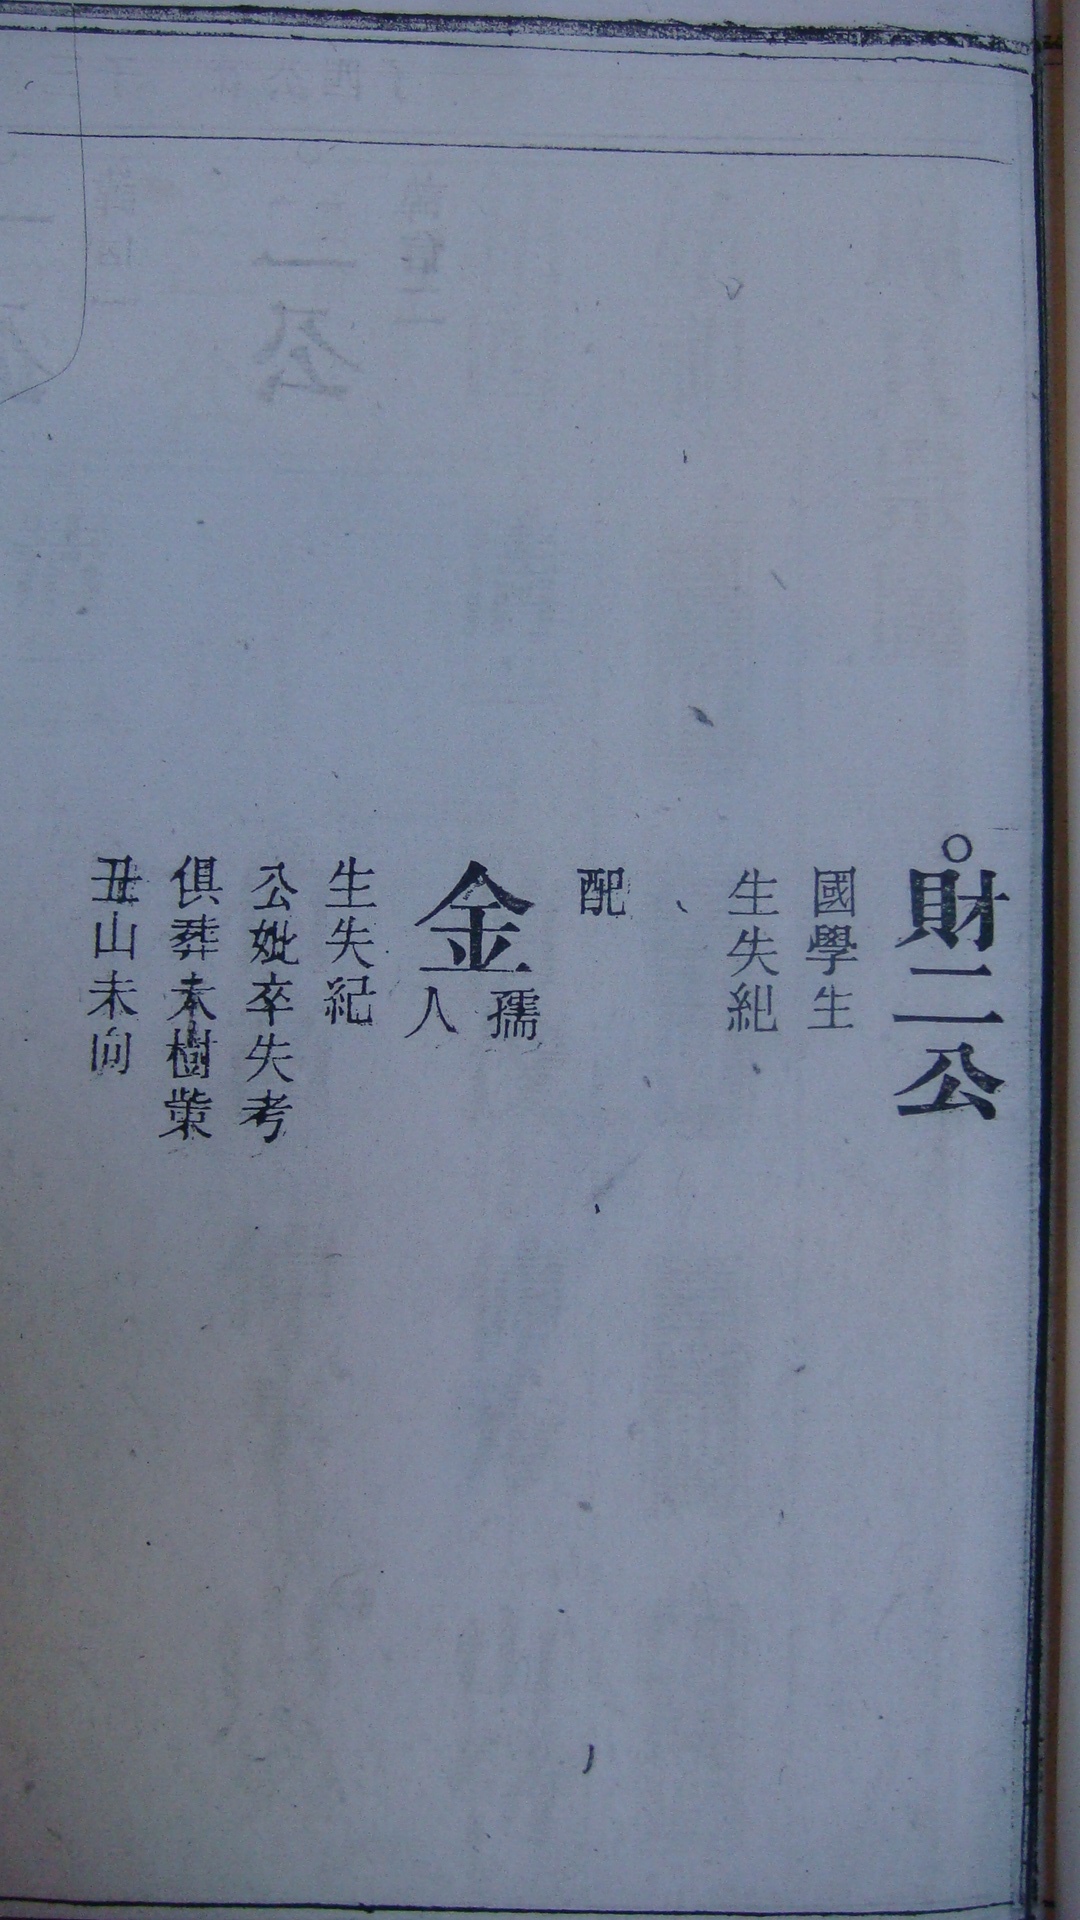 財二公
國學生
生失紀
配
金孺人
生失紀
公妣卒失考
俱葬未樹塋
丑山未向